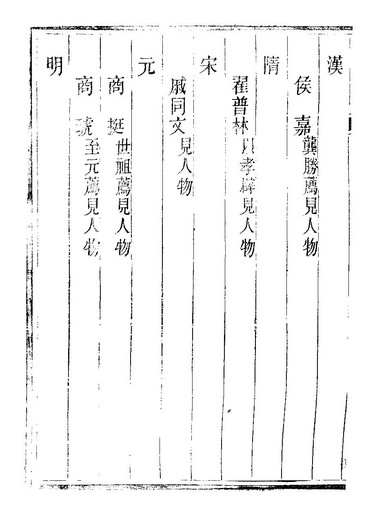 漢
侯嘉龔勝薦見人物
隋
翟普林以孝辟見人物
宋
戚同文見人物
元
商挺世祖薦見人物
商琥至元薦見人物
明